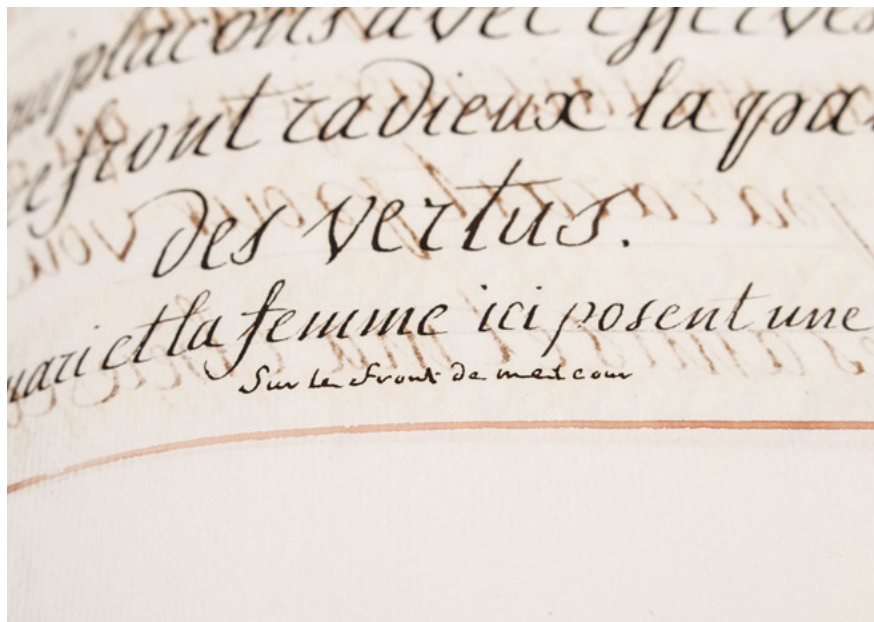 plaçons avec
ce front radieux la pa
des vertus.
mari et la femme ici posent une
Sur le front de melcour